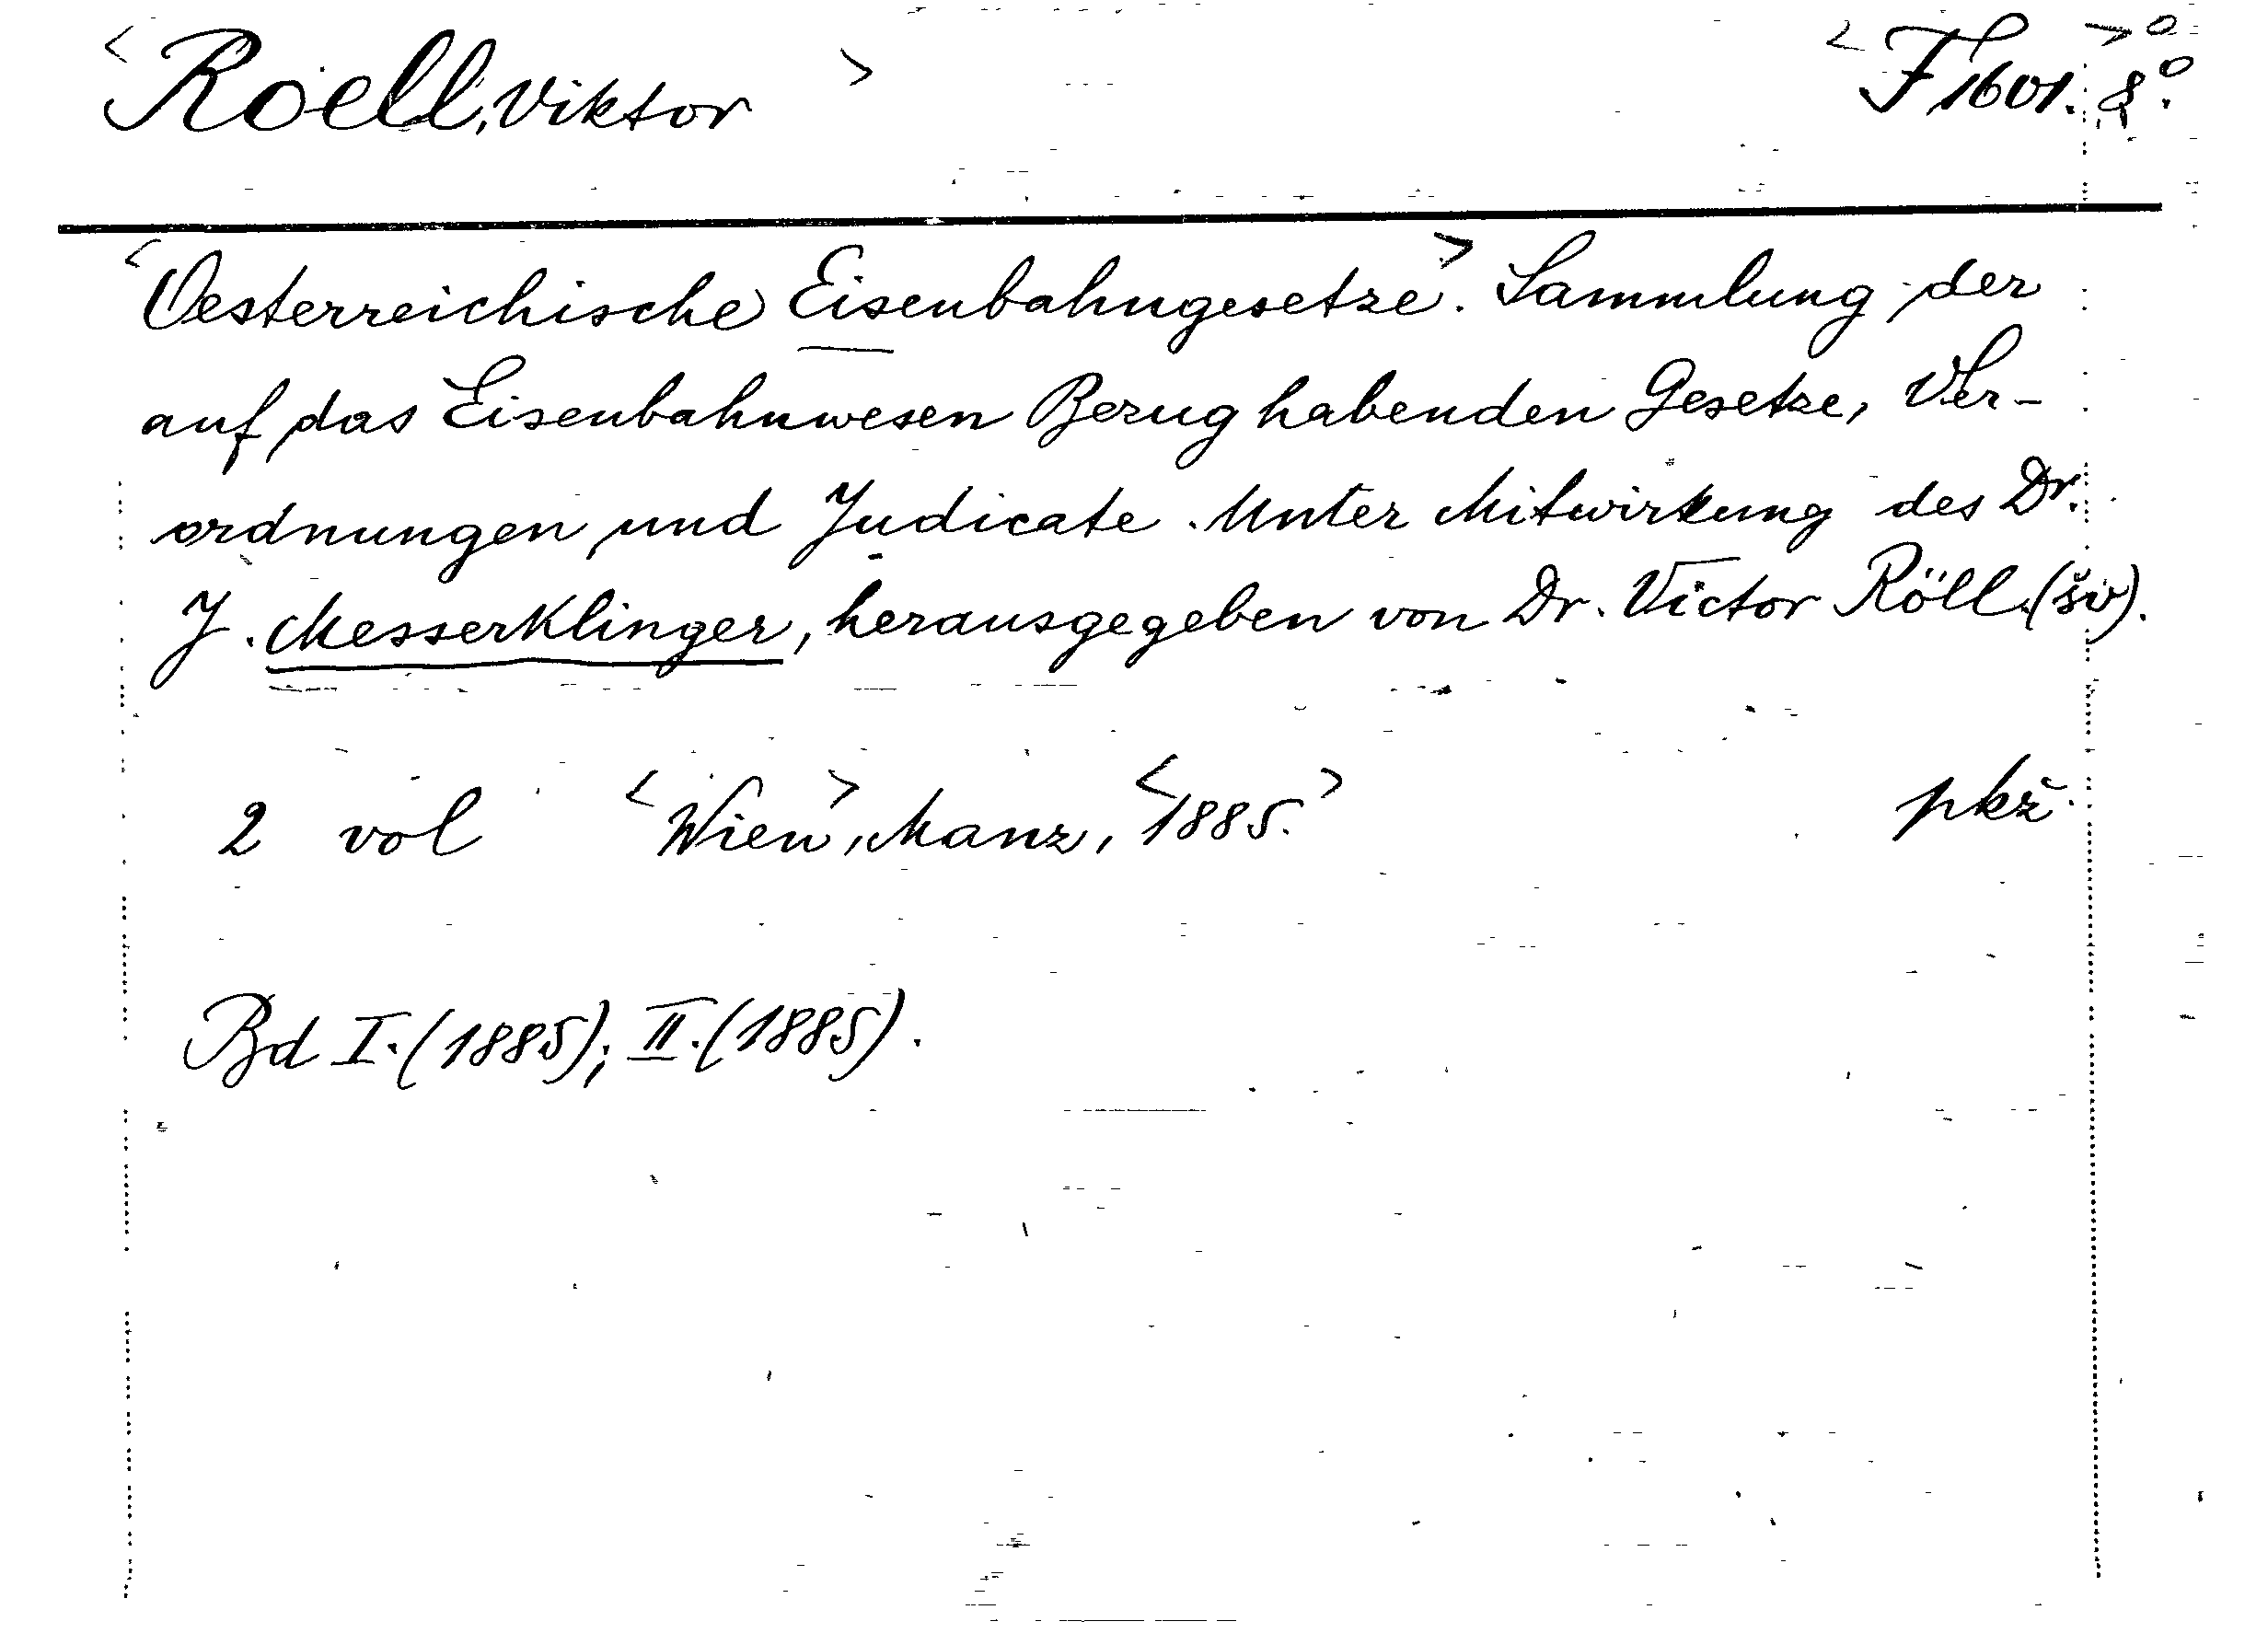 <Roell, Viktor> <F 1601. 8°.>°
<Oesterreichische Eisenbahngesetze>. Sammlung der
auf das Eisenbahnwesen Bezug habenden Gesetze, Ver-
ordnungen und Judicate. Unter Mitwirkung des Dr.
J. Messerklinger, herausgegeben von Dr. Victor Röll. (šv).
2 vol <Wien>, Manz, <1885.> pkž.
Bd I. (1885); II. (1885).